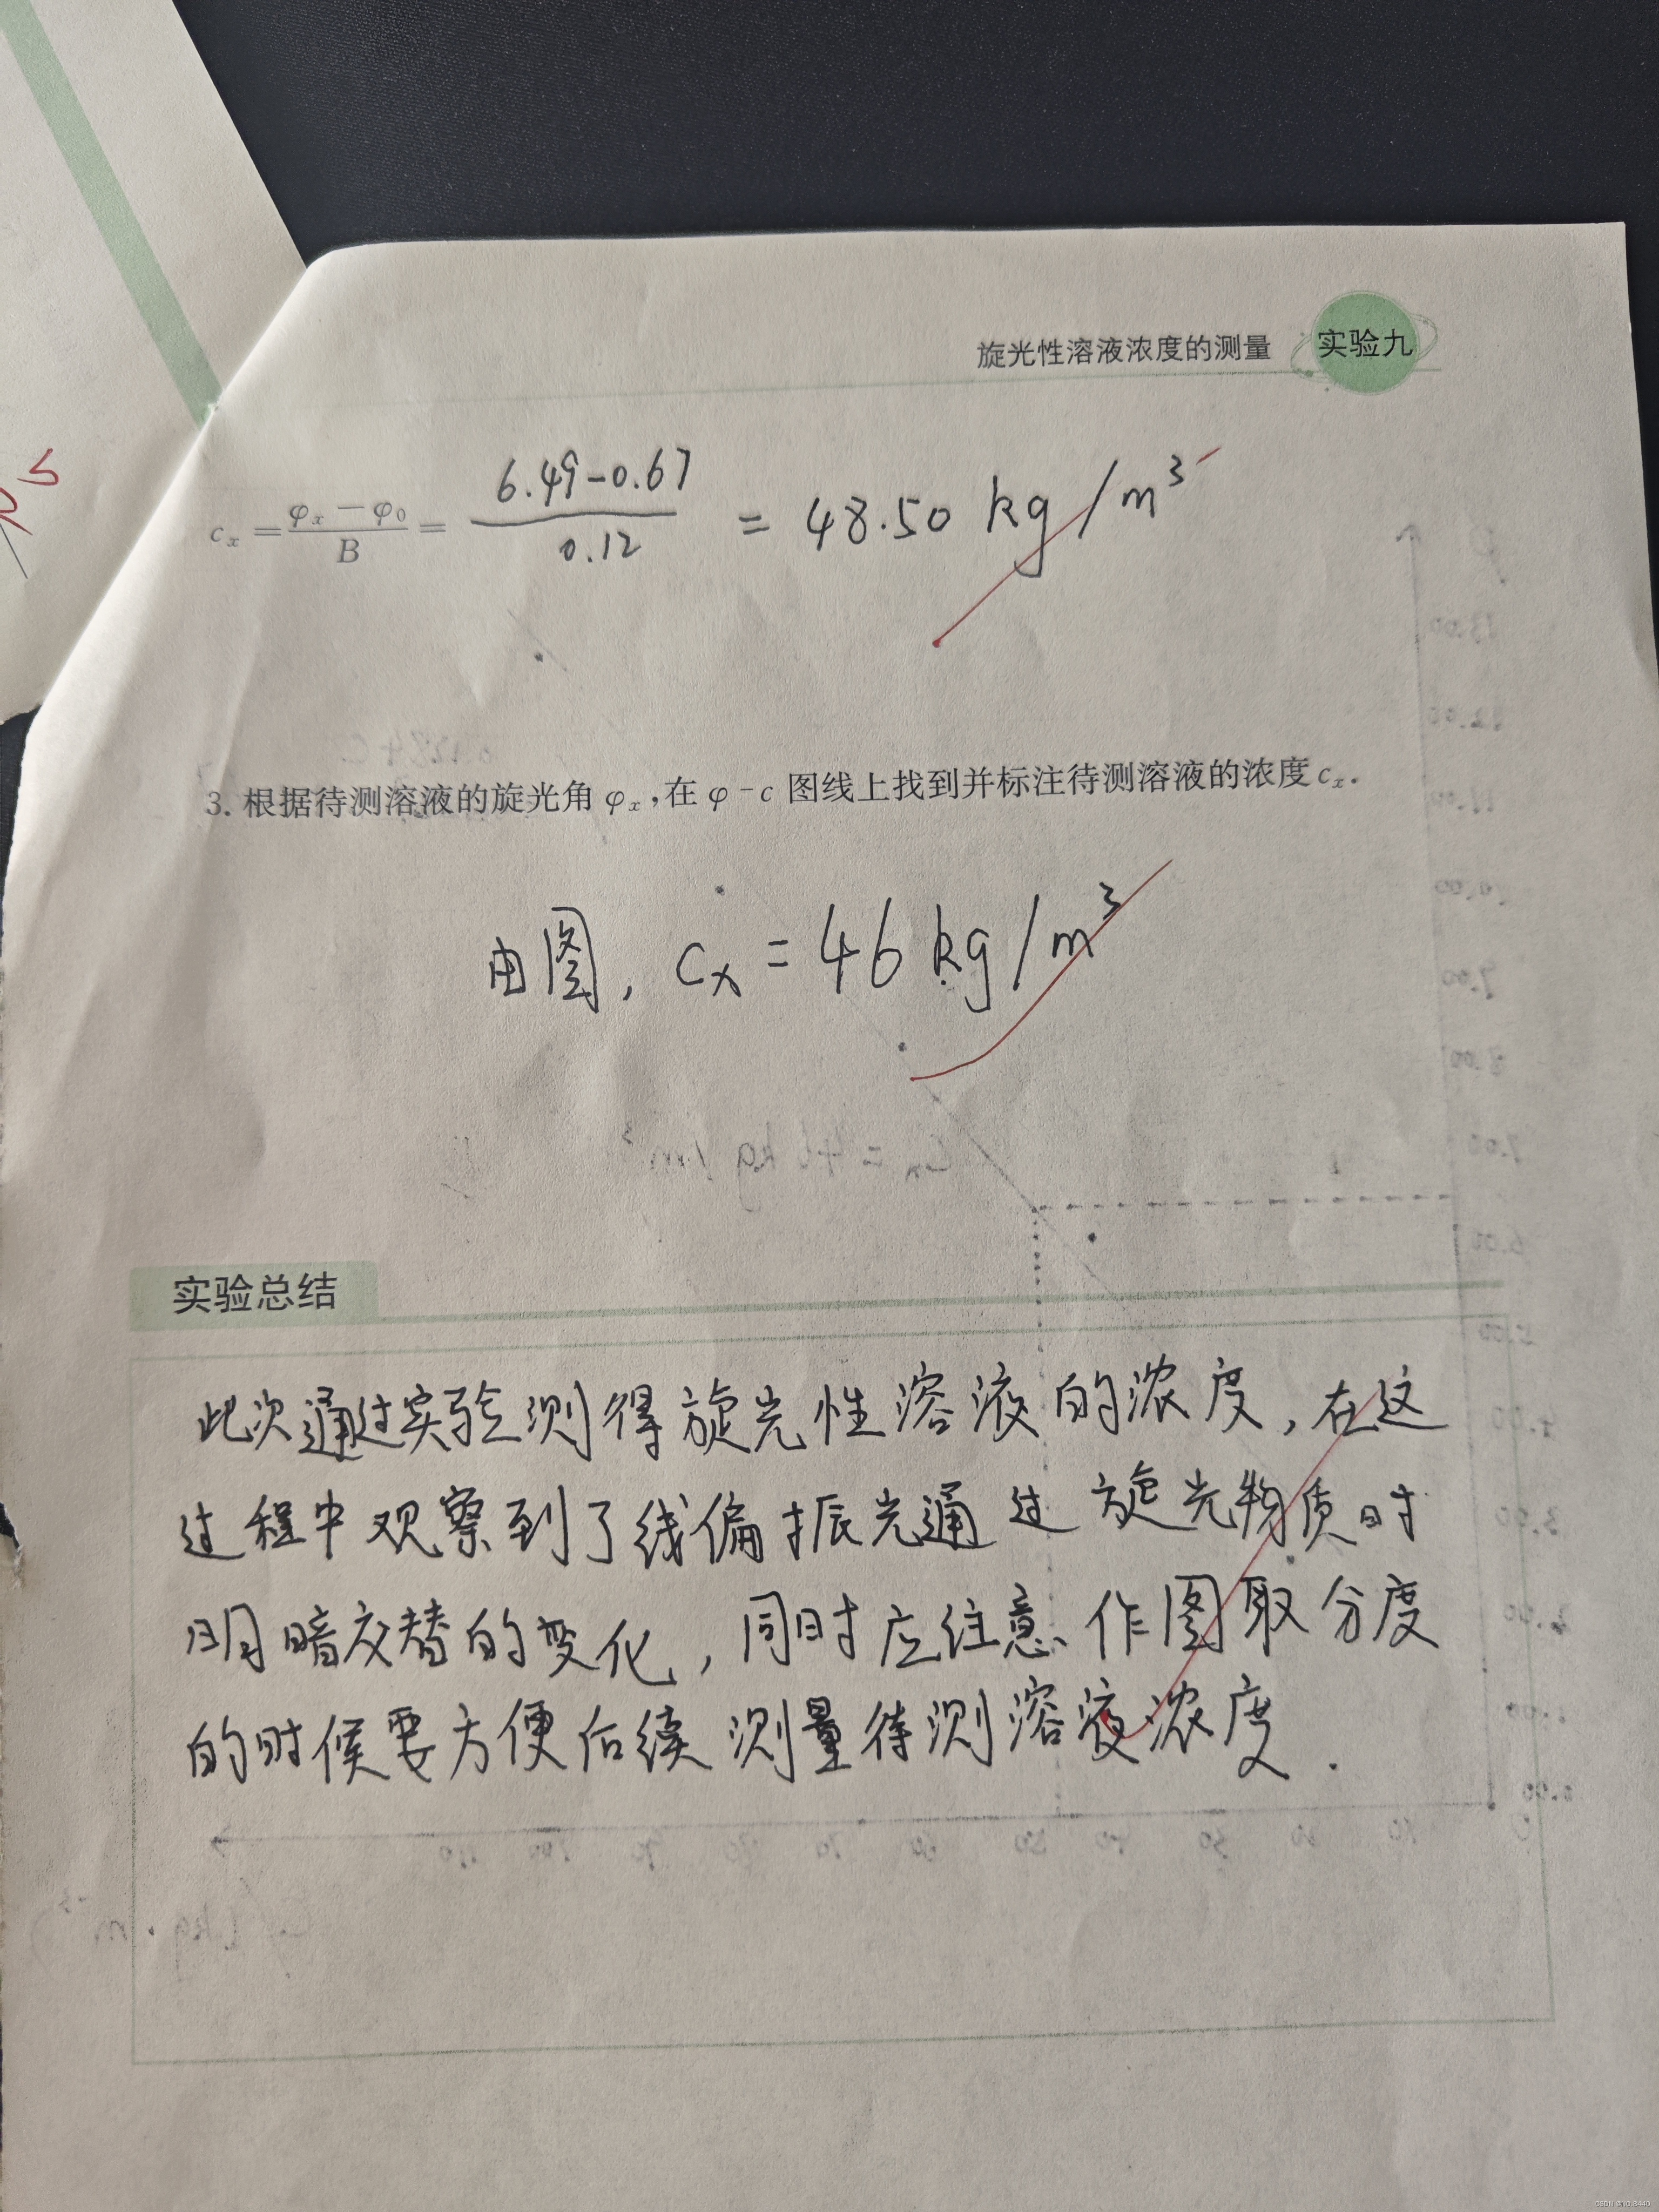 旋光性溶液浓度的测量 实验九
c_x = (φ_x − φ_0)/B = (6.49-0.67)/0.12 = 48.50 kg/m³
3. 根据待测溶液的旋光角 φ_x,在 φ-c 图线上找到并标注待测溶液的浓度 c_x.
由图, c_x = 46 kg/m³
实验总结
此次通过实验测得旋光性溶液的浓度,在这
过程中观察到了线偏振光通过旋光物质时
明暗交替的变化,同时应注意作图取分度
的时候要方便后续测量待测溶液浓度.